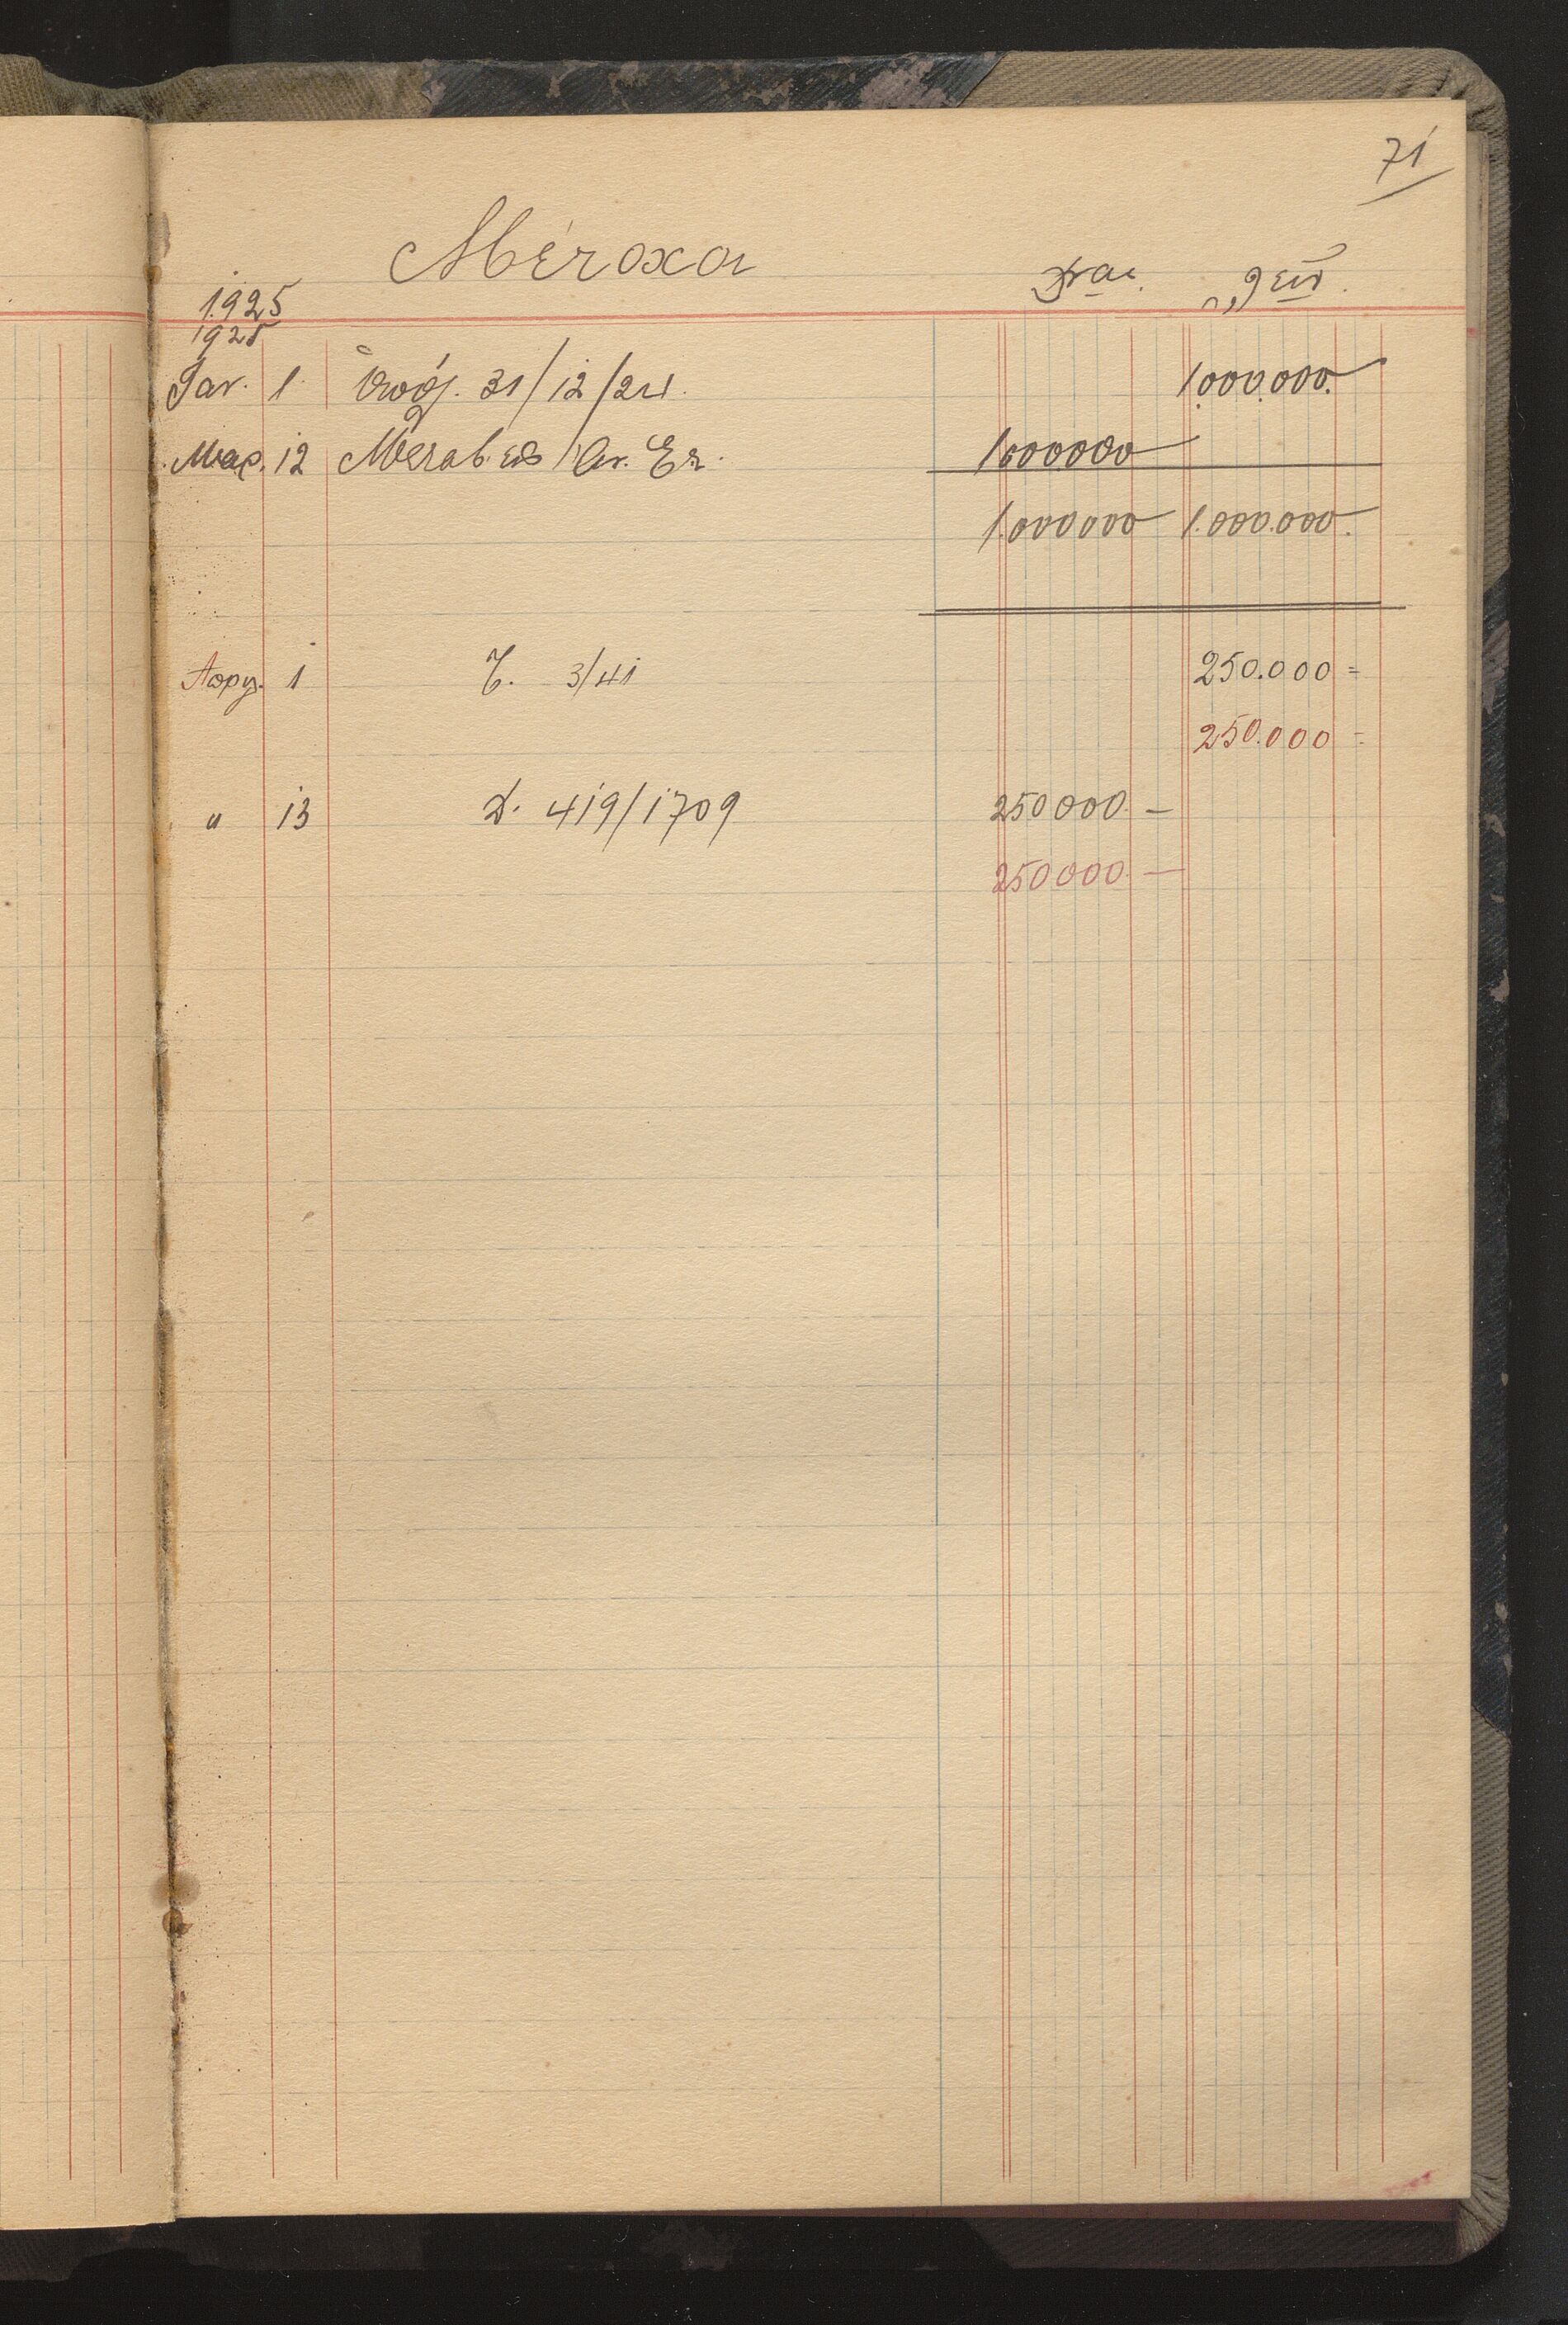 71
Μέτοχοι
1925
1925
Ιαν. 1 Υπόλ. 31/12/24. 1.000.000.—
Μαρ. 12 Μεταβ. εις Αν. Ετ. 1000000—
1.000000— 1.000.000.—
Απρ. 1 Τ. 3/41 250.000 =
250.000 =
" 13 Δ. 419/1709 250000. —
250000. —